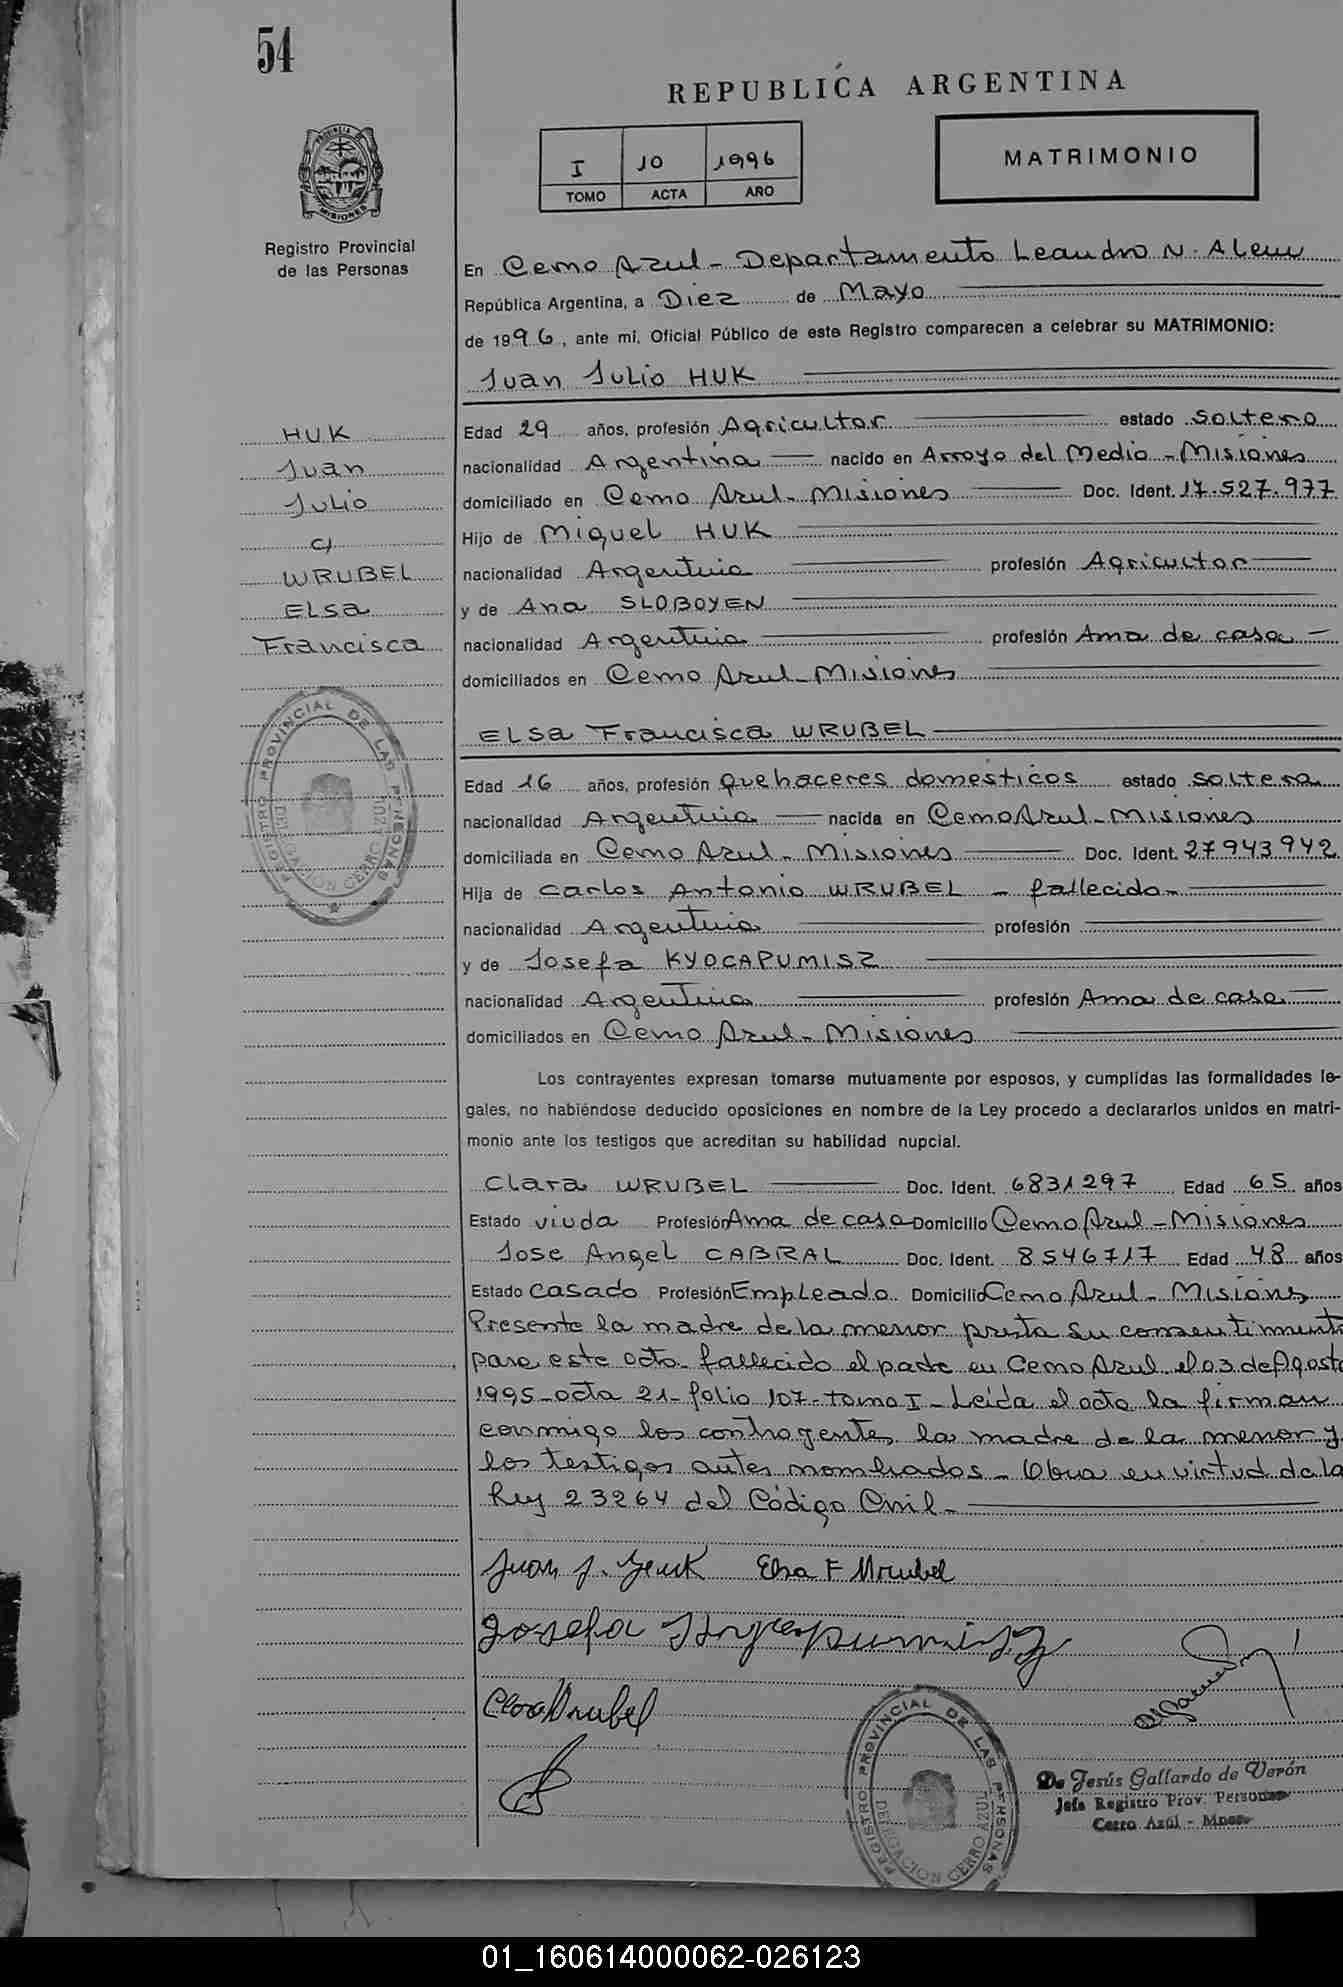 54
REPUBLICA ARGENTINA
I 10 1996
TOMO ACTA AÑO
MATRIMONIO
PROVINCIA DE MISIONES
Registro Provincial
de las Personas
En Cerro Azul - Departamento Leandro N. Alem
República Argentina, a Diez de Mayo
de 1996, ante mi, Oficial Público de este Registro comparecen a celebrar su MATRIMONIO:
Juan Julio HUK
HUK
Juan
Julio
c/
WRUBEL
ELsa
Francisca
Edad 29 años, profesión Agricultor estado soltero
nacionalidad Argentina nacido en Arroyo del Medio - Misiones
domiciliado en Cerro Azul - Misiones Doc. Ident. 17.527.977
Hijo de Miguel HUK
nacionalidad Argentina profesión Agricultor
y de Ana SLOBOYEN
nacionalidad Argentina profesión Ama de casa -
domiciliados en Cerro Azul - Misiones
REGISTRO PROVINCIAL DE LAS PERSONAS
DELEGACION CERRO AZUL
ELsa Francisca WRUBEL
Edad 16 años, profesión quehaceres domésticos estado soltera
nacionalidad Argentina nacida en Cerro Azul - Misiones
domiciliada en Cerro Azul - Misiones Doc. Ident. 27943942
Hija de Carlos Antonio WRUBEL - fallecido -
nacionalidad Argentina profesión
y de Josefa KYOCAPUMISZ
nacionalidad Argentina profesión Ama de casa
domiciliados en Cerro Azul - Misiones
Los contrayentes expresan tomarse mutuamente por esposos, y cumplidas las formalidades le-
gales, no habiéndose deducido oposiciones en nombre de la Ley procedo a declararlos unidos en matri-
monio ante los testigos que acreditan su habilidad nupcial.
Clara WRUBEL Doc. Ident. 6831297 Edad 65 años
Estado viuda Profesión Ama de casa Domicilio Cerro Azul - Misiones
Jose Angel CABRAL Doc. Ident. 8546717 Edad 48 años
Estado casado Profesión Empleado Domicilio Cerro Azul - Misiones
Presente la madre de la menor presta su consentimiento
para este acto. fallecido el padre en Cerro Azul el 03 de Agosto
1995 - acta 21 - folio 107 - tomo I - Leída el acta la firman
conmigo los contrayentes, la madre de la menor y
los testigos antes nombrados - Obra en virtud de la
Ley 23264 del Código Civil -
Juan J. Huk Elsa F Wrubel
Josefa
Clara Wrubel
REGISTRO PROVINCIAL DE LAS PERSONAS
DELEGACION CERRO AZUL
De Jesús Gallardo de Verón
Jefa Registro Prov. Personas
Cerro Azúl - Mnes
01_160614000062-026123